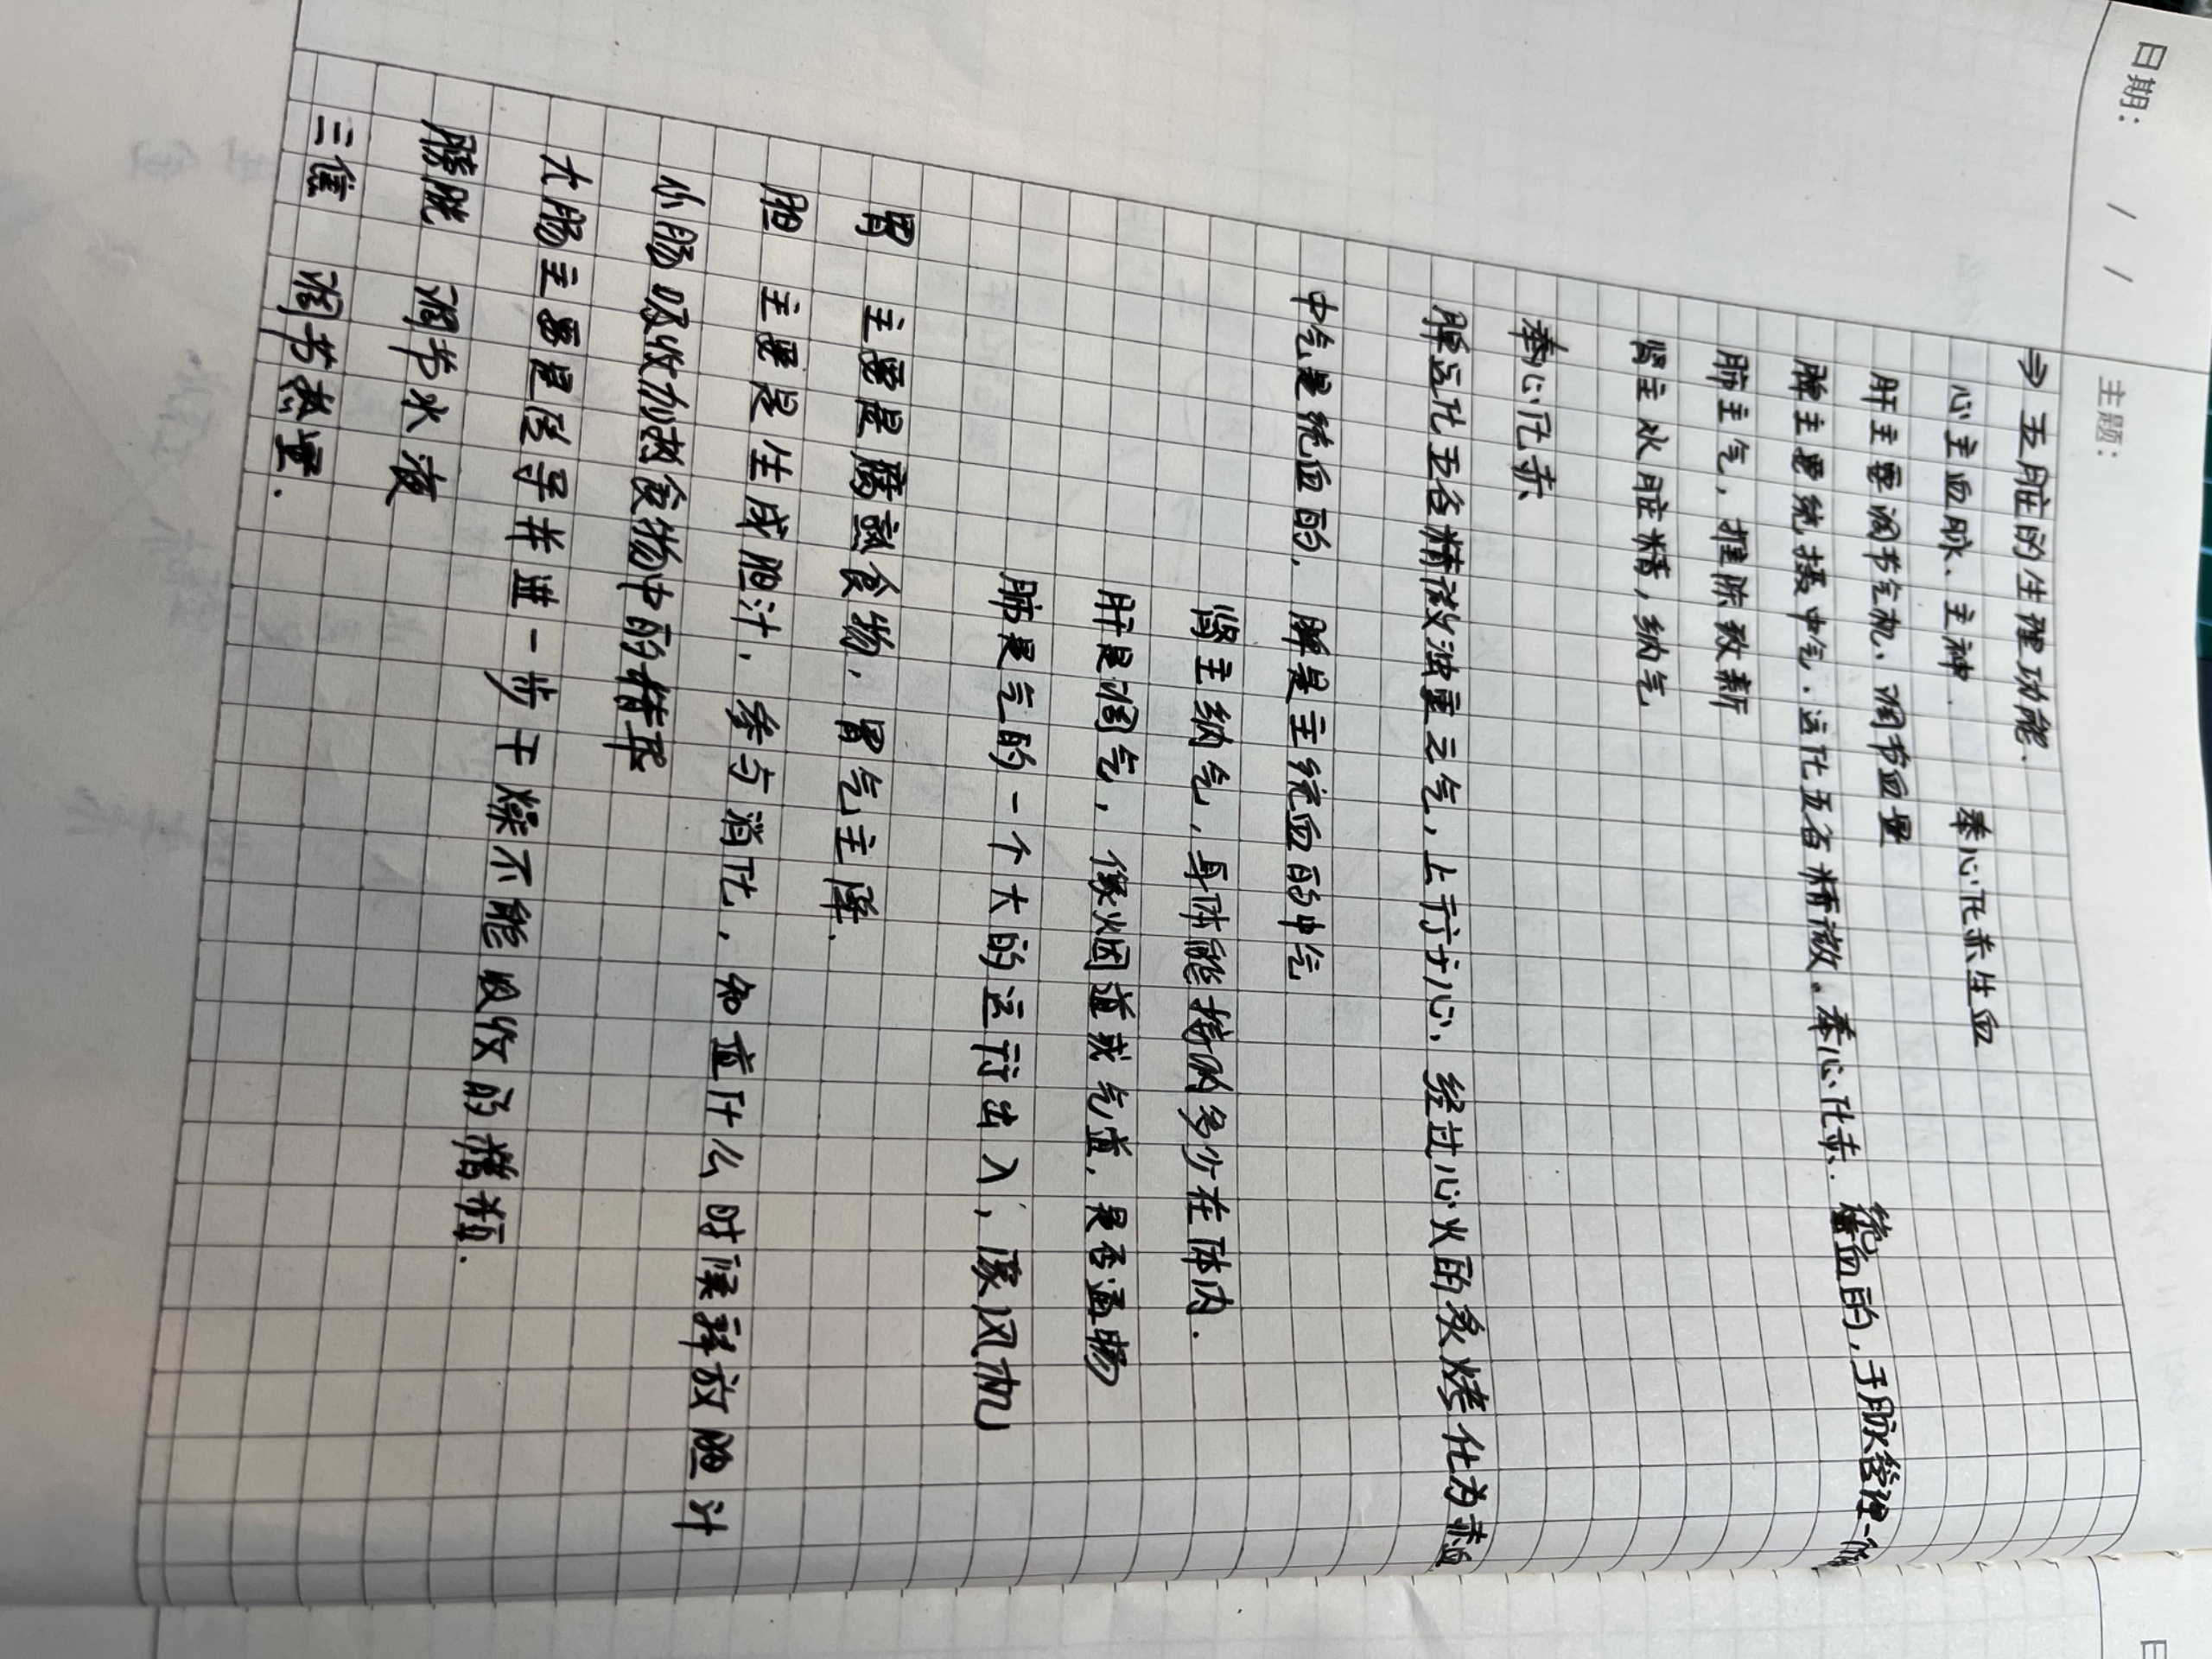 日期: / /
主题:
⇒ 五脏的生理功能.
心主血脉、主神. 奉心化赤生血
肝主要调节气机、调节血量
脾主要统摄中气.运化五谷精微。奉心化赤. 统血的,于脉管裡一
肺主气,推陈致新
肾主水脏精,纳气
奉心化赤
脾运化五谷精微浊重之气,上于心、经过心火的炙烤化为赤血
中气是统血的. 脾是主统血的中气
肾主纳气,身体能接纳多少在体内.
肝是调气,像烟囱道或气道,是否通畅
肺是气的一个大的运行出入,像风机
胃 主要是腐熟食物,胃气主降.
胆 主要是生成胆汁,参与消化,知道什么时候释放胆汁
小肠吸收加热食物中的精华
大肠主要是传导并进一步干燥不能吸收的糟粕.
膀胱 调节水液
三焦 调节热量.
日